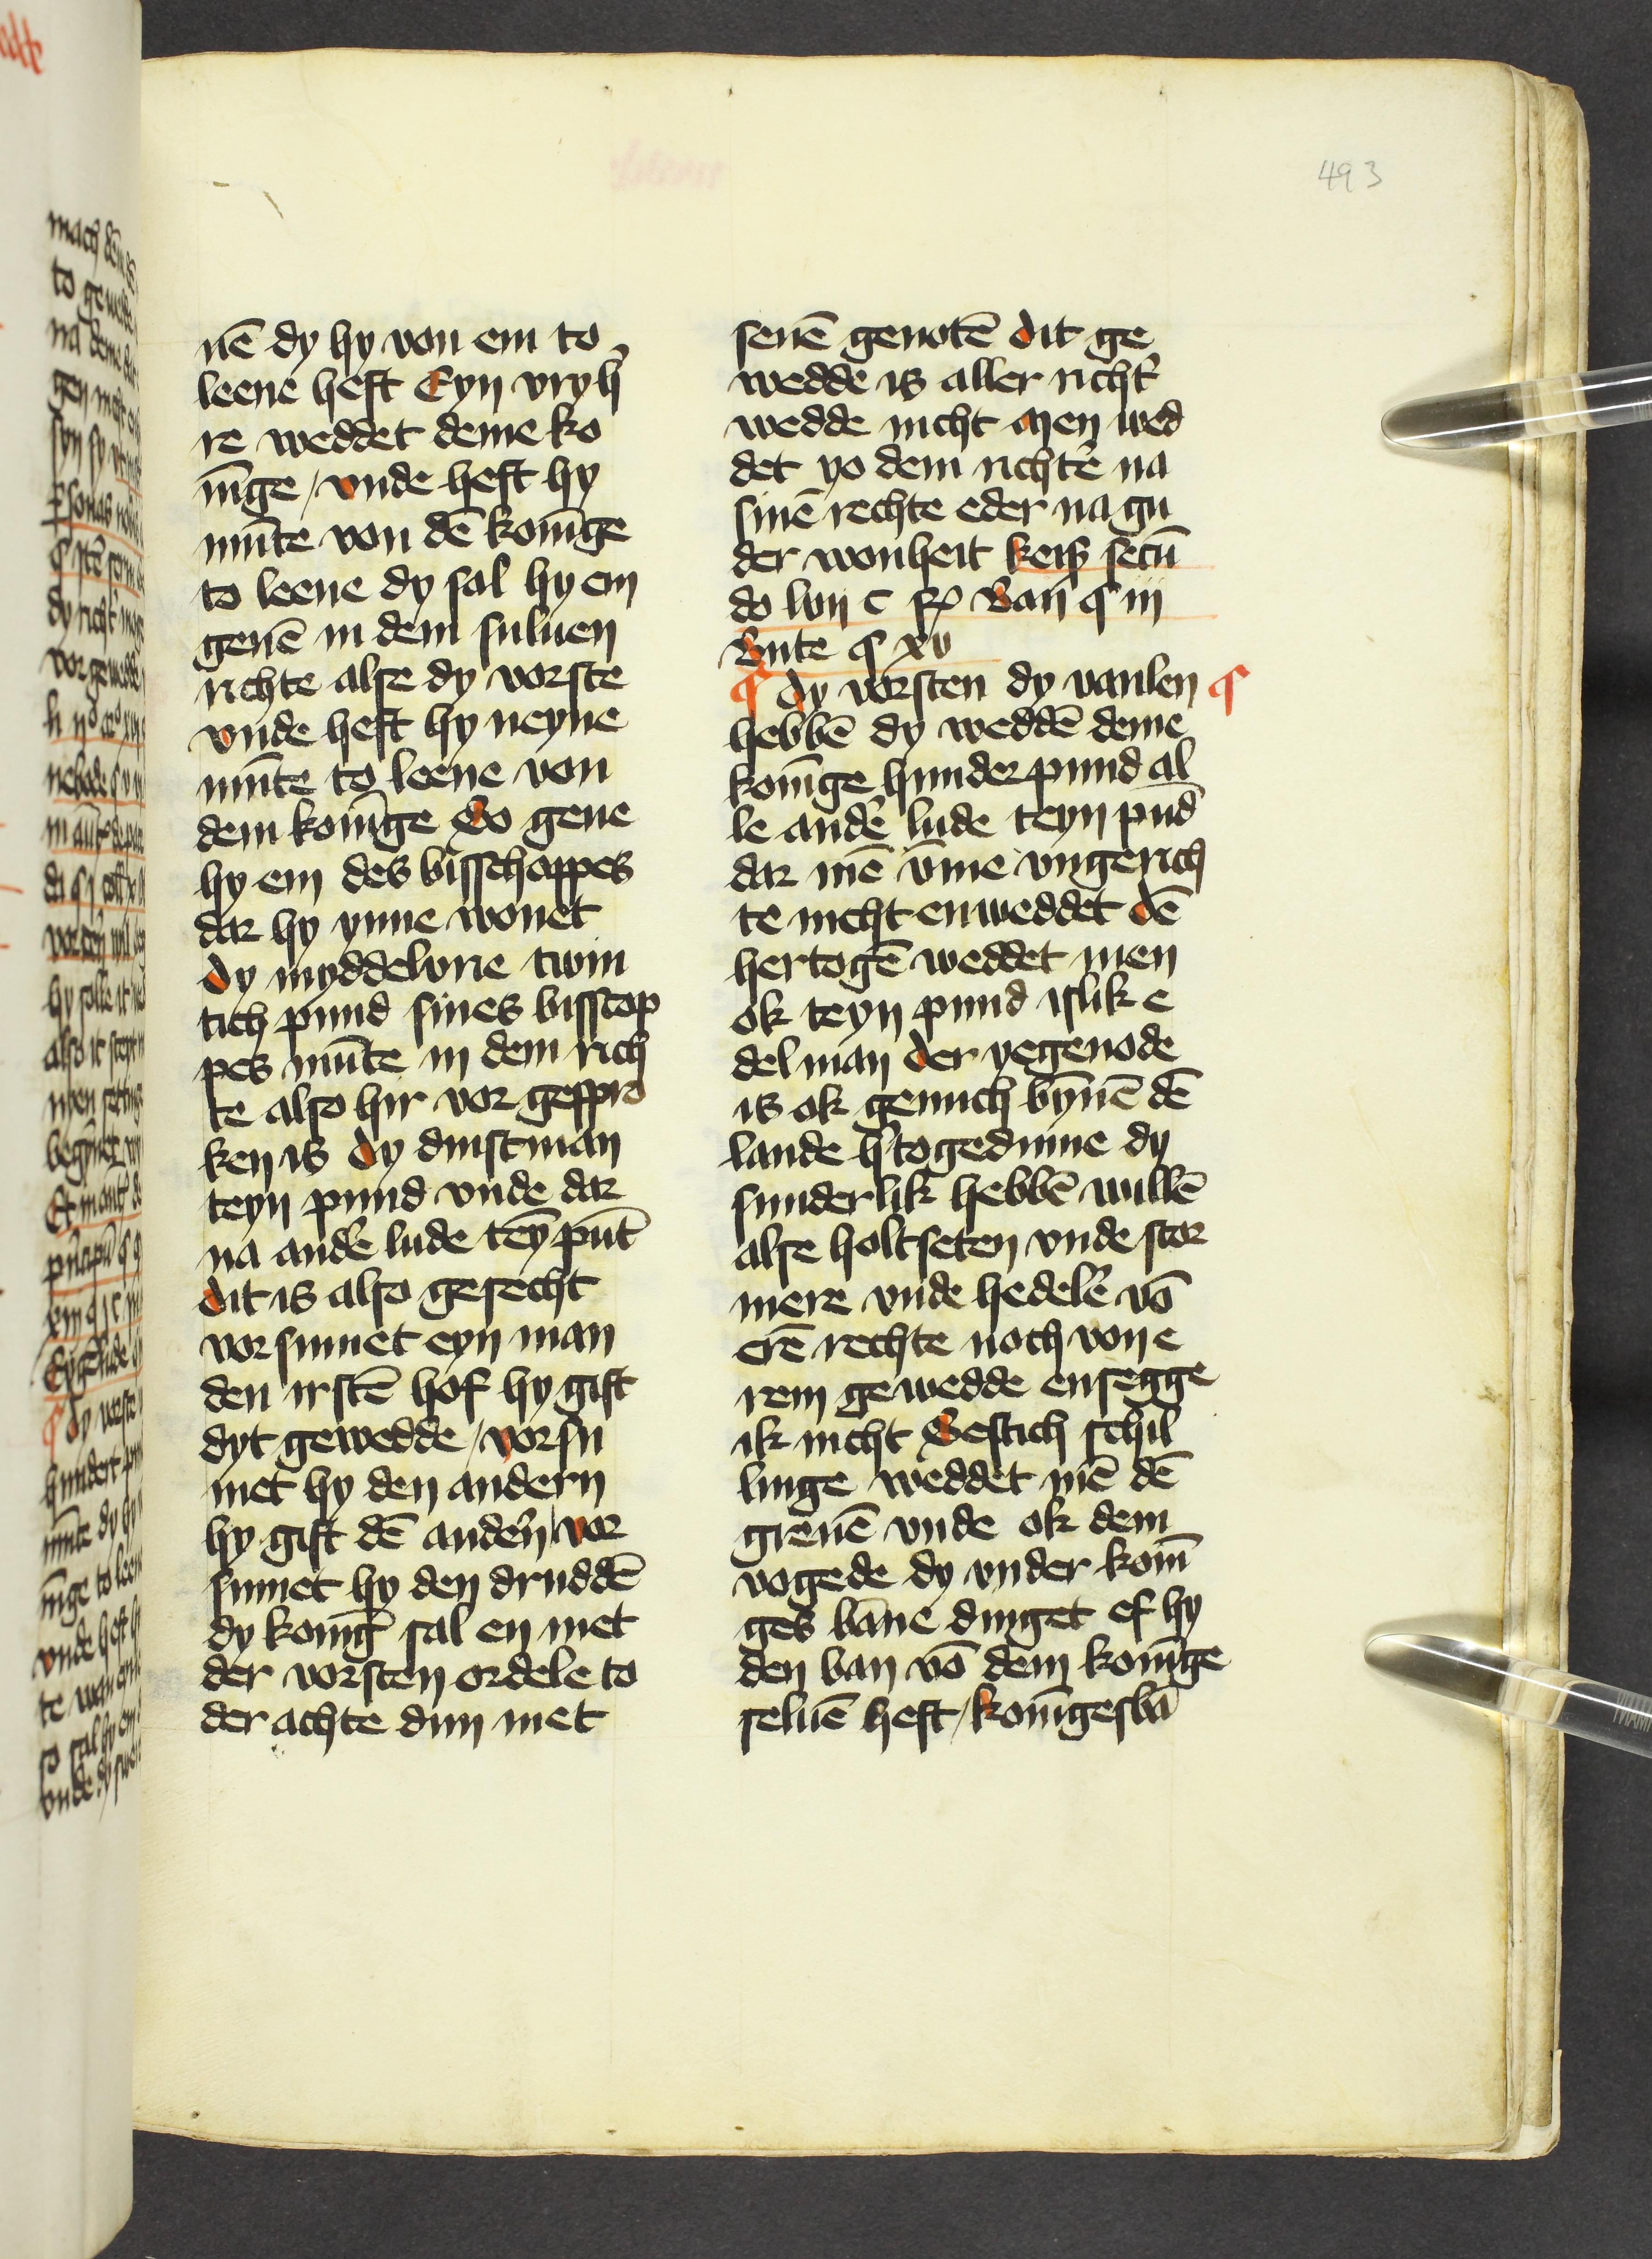 493
nē dy hy von em to
leene heft Eyn vryh̓
re weddet deme ko
nīge / vnde heft hy
mūte von dē konīge
to leene dy sal hy em
geuē in dem suluen
richte alse dy vorste
vnde heft hy neyne
mūte to leene von
dem konīge So geue
hy em des bisschoppes
dar hy ynne wonet
dy myddelvrie twin
tich pund sines bisscop
pes mūte in dem rich
te also hir vor gespro
ken is dy dinstman
teyn pund vnde dar
na ander̄ lude tēy pūt
dit is also gesecht
vorsumet eyn man
den irstē hof hy gift
dyt gewedde / vorsu
met hy den andern
hy gift dē andern̄ / vor
sumet hy den druddē
dy konīg sal en met
der vorsten ordele to
der achte dun met
seuē genotē dit ge
wedde is aller richt̓
wedde nicht Men wed
det yo dem richter̄ na
sinē rechte eder na gu
der wonheit keiß secū
do lvii c ß Ban ¶ iii
Bute ¶ xv
¶ dy vorsten dy vanlen ¶
hebbē dy weddē deme
konīge hunder pund al
le ander̄ lude teyn pūd
dar mē v̄me vngerich
te nicht enweddet dē
hertogē weddet men
ok teyn pund islik e
delman der yegenode
is ok genuch bȳnē dē
lande h̓togedume dy
sunderlik hebbē willē
alse holtseten vnde stor
mere vnde hedeler̄ vō
erē rechte noch von e
rem gewedde ensegge
ik nicht Sestich schil
linge weddet mē dē
greuē vnde ok dem
vogede dy vnder konī
ges bāne dinget ef hy
den ban vō dem konīge
seluē heft / konīgesbā